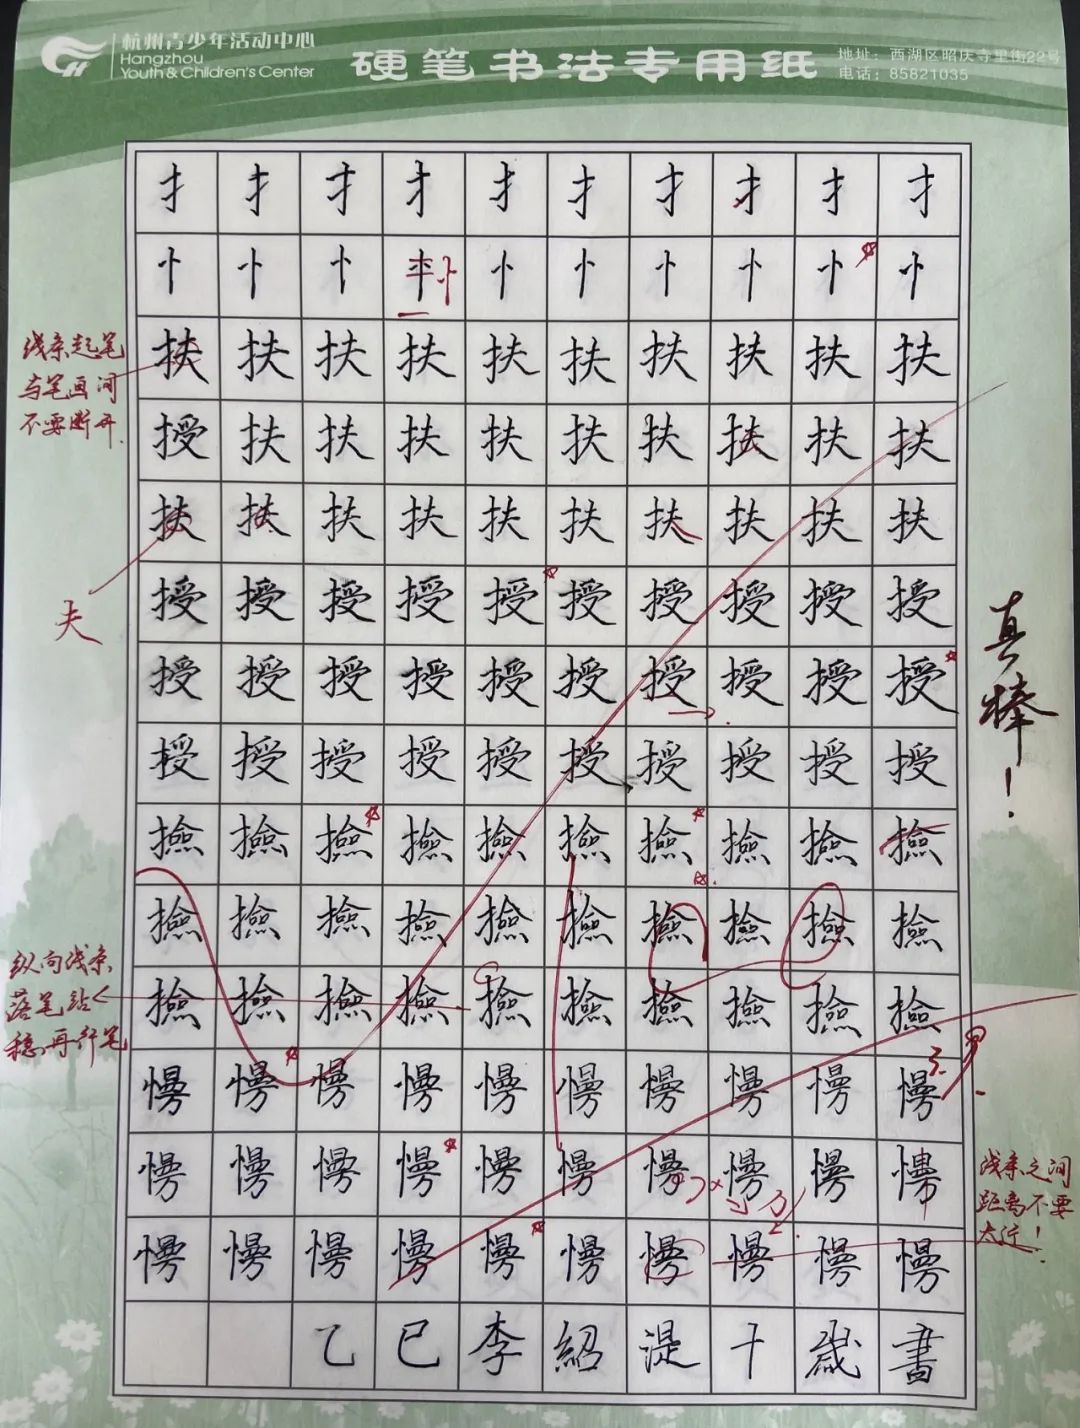 杭州青少年活动中心
Hangzhou
Youth & Children's Center
硬笔书法专用纸
地址：西湖区昭庆寺里街22号
电话：85821035
扌扌扌扌扌扌扌扌扌扌
忄忄忄忄忄忄忄忄忄
扶扶扶扶扶扶扶扶扶扶
授扶扶扶扶扶扶扶扶扶
扶扶扶扶扶扶扶扶扶扶
授授授授授授授授授授
授授授授授授授授授授
授授授授授授授授授授
撿撿撿撿撿撿撿撿撿撿
撿撿撿撿撿撿撿撿撿撿
撿撿撿撿撿撿撿撿撿撿
慢慢慢慢慢慢慢慢慢慢
慢慢慢慢慢慢慢慢慢慢
慢慢慢慢慢慢慢慢慢慢
乙巳李紹湜十歲書
线条起笔
与笔画间
不要断开.
夫
纵向线条
落笔站
稳,再行笔
真棒！
线条之间
距离不要
太近！